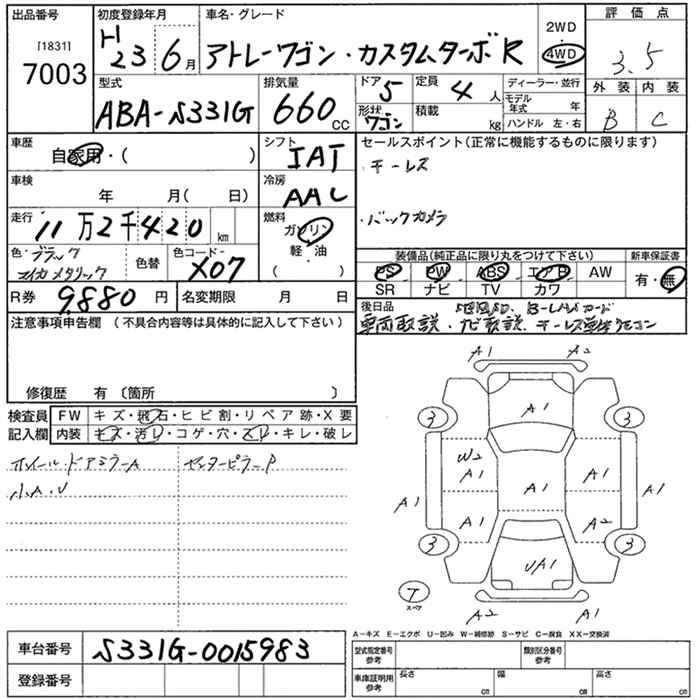 出品番号 初度登録年月 車名・グレード 2WD 4WD 評価点
[1831] 7003 H23 6月 アトレーワゴン・カスタムターボR 3.5
型式 排気量 ドア 5 定員 4人 ディーラー・並行 外装 内装
ABA-S331G 660CC 形状 ワゴン 積載 kg モデル年式 年 B C
ハンドル 左・右
車歴 自家用・( ) シフト IAT セールスポイント(正常に機能するものに限ります)
車検 年 月( 日) 冷房 AAC ・キーレス
走行 11万2千420km 燃料 ガソリン 軽・油 ( ) ・バックカメラ
色・ブラック マイカメタリック 色替 色コード X07 装備品(純正品に限り丸をつけて下さい) 新車保証書
PS PW ABS エアB AW 有・無
R券 9,880円 名変期限 月 日 SR ナビ TV カワ
後日品
注意事項申告欄(不具合内容等は具体的に記入して下さい) 車両取説、ナビ取説、キーレス
修復歴 有〔箇所 〕
検査員 FW キズ・飛石・ヒビ割・リペア跡・X要
記入欄 内装 キズ・汚レ・コゲ・穴・スレ・キレ・破レ
ホイール・ドアミラーA センターピラーP
小A・U
A1 A2
A1
3 3
W2
A1 A1 A1
A1 A1
A1 A2
3 3
UA1
T スペア
A2 A1
A-キズ E-エクボ U-凹み W-補修跡 S-サビ C-腐食 XX-交換済
車台番号 S331G-0015983 型式指定番号 参考 類別区分番号 参考
登録番号 車庫証明用 参考 長さ cm 幅 cm 高さ cm